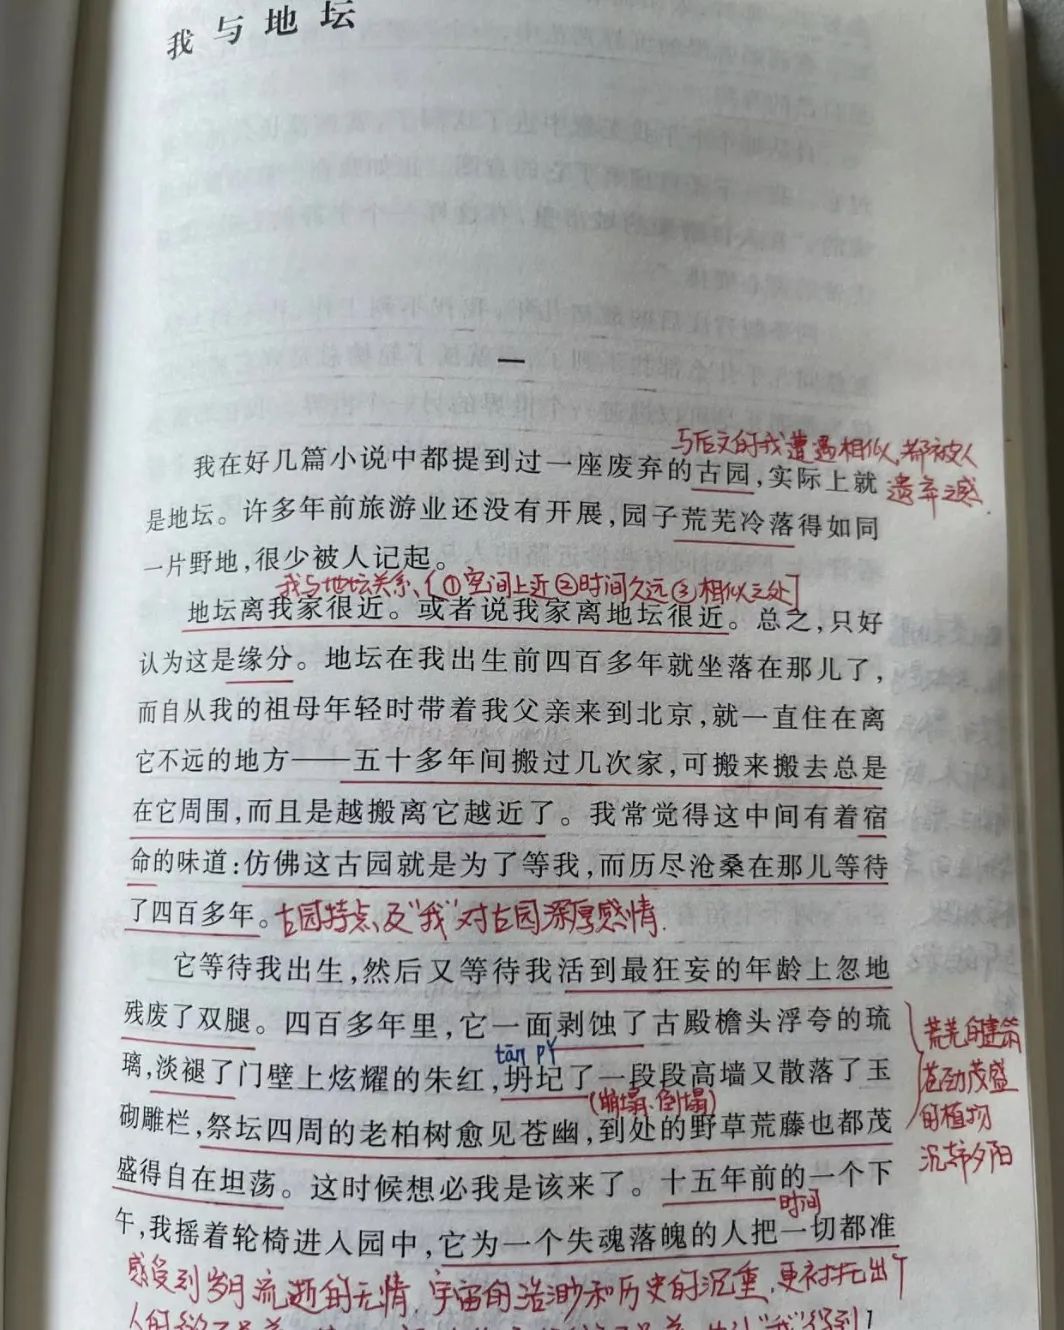 我与地坛
一
与后文的我遭遇相似,都被人
我在好几篇小说中都提到过一座废弃的古园,实际上就
遗弃之感.
是地坛。许多年前旅游业还没有开展,园子荒芜冷落得如同
一片野地,很少被人记起。
我与地坛关系、[①空间上近②时间久远③相似之处]
地坛离我家很近。或者说我家离地坛很近。总之,只好
认为这是缘分。地坛在我出生前四百多年就坐落在那儿了,
而自从我的祖母年轻时带着我父亲来到北京,就一直住在离
它不远的地方——五十多年间搬过几次家,可搬来搬去总是
在它周围,而且是越搬离它越近了。我常觉得这中间有着宿
命的味道:仿佛这古园就是为了等我,而历尽沧桑在那儿等待
了四百多年。
古园特点及"我"对古园深厚感情.
它等待我出生,然后又等待我活到最狂妄的年龄上忽地
残废了双腿。四百多年里,它一面剥蚀了古殿檐头浮夸的琉
tān pǐ
璃,淡褪了门壁上炫耀的朱红,坍圮了一段段高墙又散落了玉
(崩塌、倒塌)
砌雕栏,祭坛四周的老柏树愈见苍幽,到处的野草荒藤也都茂
盛得自在坦荡。这时候想必我是该来了。十五年前的一个下
时间
午,我摇着轮椅进入园中,它为一个失魂落魄的人把一切都准
荒芜的建筑
苍劲茂盛
的植物
沉静夕阳
感受到岁月流逝的无情,宇宙的浩渺和历史的沉重,更衬托出个